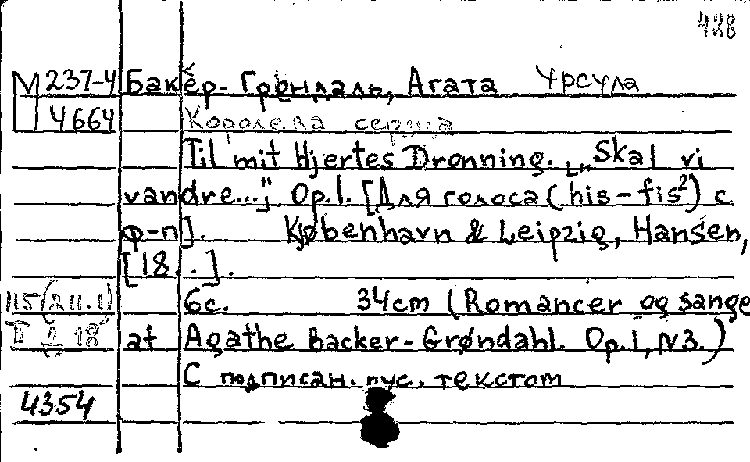 428
М 237-4 Бакер-Грёндаль, Агата Урсула
4664 Королева сердца
Til mit Hjertes Dronning. [„Skal vi
vandre...“]. Op.1. [Для голоса (his-fis²) с
ф-п]. København & Leipzig, Hansen,
[18..].
6с. 34cm (Romancer og sange
af Agathe Backer-Grøndahl. Op.1, N3.)
С подписан. рус. текстом
4354